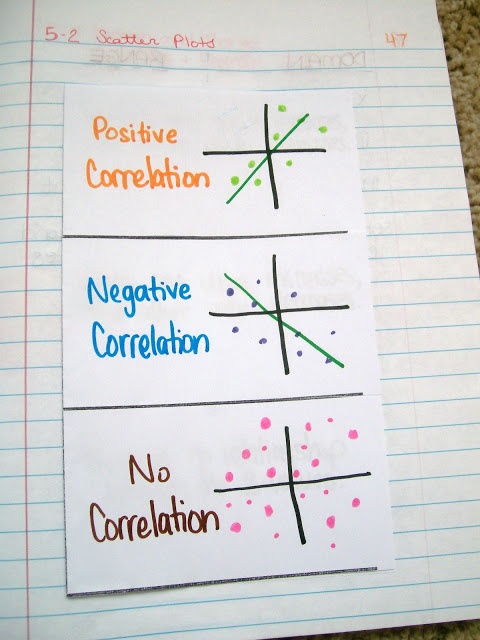 5-2 Scatter Plots 47
DOMAIN RANGE
Positive
Correlation
Negative
Correlation
No
Correlation